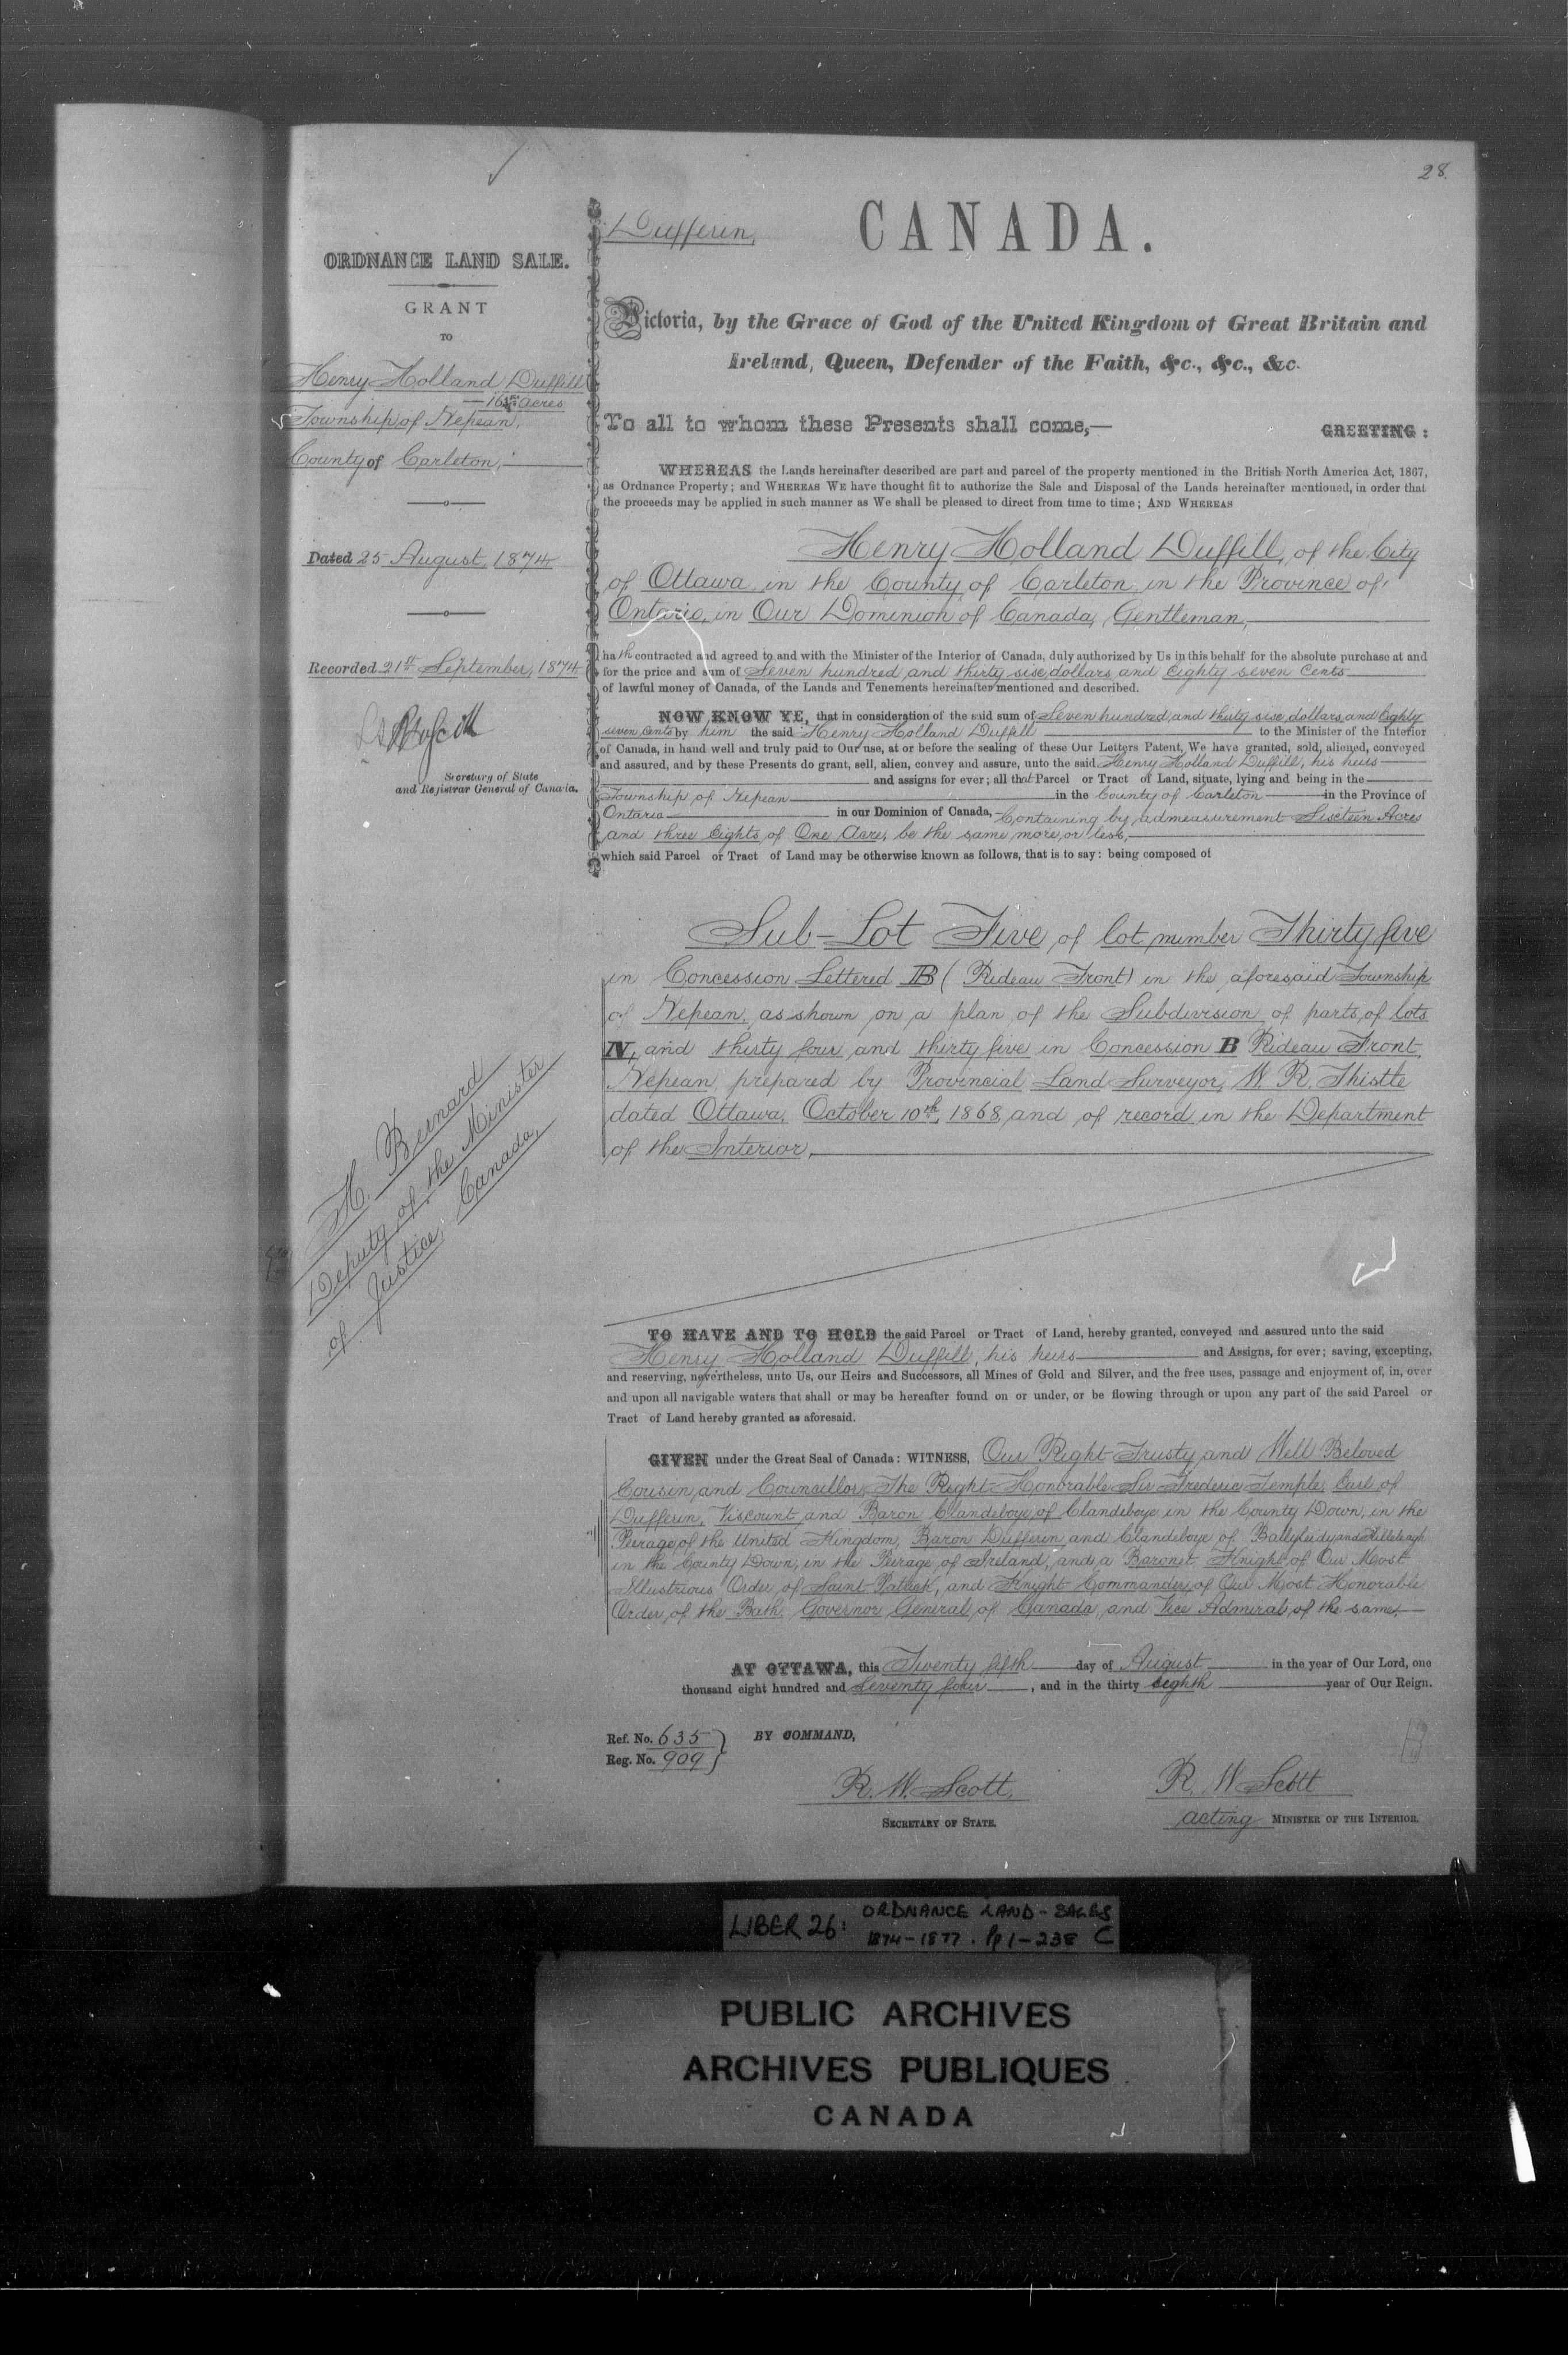 28.
ORDNANCE LAND SALE.
GRANT
TO
Henry Holland Duffill
Township of Nepean,
County of Carleton,
Dated 25 August, 1874
Recorded 21st September, 1874
Secretary of State
and Registrar General of Canada.
H. Bernard
Deputy of the Minister
of Justice, Canada,
Dufferin,
CANADA.
Victoria, by the Grace of God of the United Kingdom of Great Britain and
Ireland, Queen, Defender of the Faith, &c., &c., &c.
To all to whom these Presents shall come,—
GREETING:
WHEREAS the Lands hereinafter described are part and parcel of the property mentioned in the British North America Act, 1867,
as Ordnance Property; and WHEREAS WE have thought fit to authorize the Sale and Disposal of the Lands hereinafter mentioned, in order that
the proceeds may be applied in such manner as We shall be pleased to direct from time to time; AND WHEREAS
Henry Holland Duffill, of the City
of Ottawa, in the County of Carleton, in the Province of
Ontario, in Our Dominion of Canada, Gentleman,
hath contracted and agreed to and with the Minister of the Interior of Canada, duly authorized by Us in this behalf for the absolute purchase at and
for the price and sum of Seven hundred and thirty six dollars and Eighty seven Cents
of lawful money of Canada, of the Lands and Tenements hereinafter mentioned and described.
NOW KNOW YE, that in consideration of the said sum of Seven hundred and thirty six dollars and Eighty
seven Cents by him the said Henry Holland Duffill to the Minister of the Interior
of Canada, in hand well and truly paid to Our use, at or before the sealing of these Our Letters Patent, We have granted, sold, aliened, conveyed
and assured, and by these Presents do grant, sell, alien, convey and assure, unto the said Henry Holland Duffill, his heirs
and assigns for ever; all that Parcel or Tract of Land, situate, lying and being in the
Township of Nepean in the County of Carleton in the Province of
Ontario in our Dominion of Canada, Containing by admeasurement Sixteen Acres
and three Eights of One Acre, be the same more or less,
which said Parcel or Tract of Land may be otherwise known as follows, that is to say: being composed of
Sub-Lot Five of lot number Thirty five
in Concession Lettered B (Rideau Front) in the aforesaid Township
of Nepean, as shown on a plan of the Subdivision of parts of lots
N, and thirty four and thirty five in Concession B Rideau Front
Nepean, prepared by Provincial Land Surveyor, W. R. Thistle
dated Ottawa, October 10th, 1868, and of record in the Department
of the Interior,
TO HAVE AND TO HOLD the said Parcel or Tract of Land, hereby granted, conveyed and assured unto the said
Henry Holland Duffill, his heirs and Assigns, for ever; saving, excepting,
and reserving, nevertheless, unto Us, our Heirs and Successors, all Mines of Gold and Silver, and the free uses, passage and enjoyment of, in, over
and upon all navigable waters that shall or may be hereafter found on or under, or be flowing through or upon any part of the said Parcel or
Tract of Land hereby granted as aforesaid.
GIVEN under the Great Seal of Canada: WITNESS, Our Right Trusty and Well Beloved
Cousin and Councillor The Right Honorable Sir Frederic Temple, Earl of
Dufferin, Viscount and Baron Clandeboye, of Clandeboye in the County Down, in the
Peerage of the United Kingdom, Baron Dufferin and Clandeboye of Ballyleidy and Killeleagh
in the County Down, in the Peerage of Ireland, and a Baronet, Knight of Our Most
Illustrious Order of Saint Patrick, and Knight Commander of Our Most Honorable
Order of the Bath, Governor General of Canada, and Vice Admiral of the same,
AT OTTAWA, this Twenty fifth day of August in the year of Our Lord, one
thousand eight hundred and Seventy four, and in the thirty eighth year of Our Reign.
Ref. No. 635
Reg. No. 909
BY COMMAND,
R. W. Scott,
SECRETARY OF STATE.
R. W. Scott
acting MINISTER OF THE INTERIOR.
LIBER 26: ORDNANCE LAND-SALES
1874-1877. Pp 1-238 C
PUBLIC ARCHIVES
ARCHIVES PUBLIQUES
CANADA